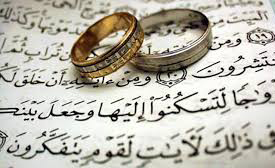 تَنتَشِرُونَ ٢٠ وَمِنْ ءَايَـٰتِهِۦٓ أَنْ خَلَقَ
وَٰجًا لِّتَسْكُنُوٓا۟ إِلَيْهَا وَجَعَلَ بَيْنَكُ
ذَٰلِكَ لَـَٔايَـٰتٍ لِّقَوْمٍ يَتَفَكَّرُونَ